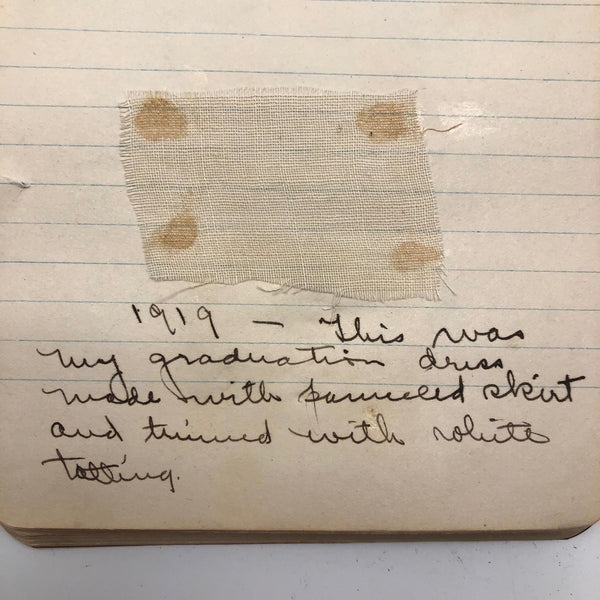 1919 — This was
my graduation dress
made with panneled skirt
and trimmed with white
tatting.